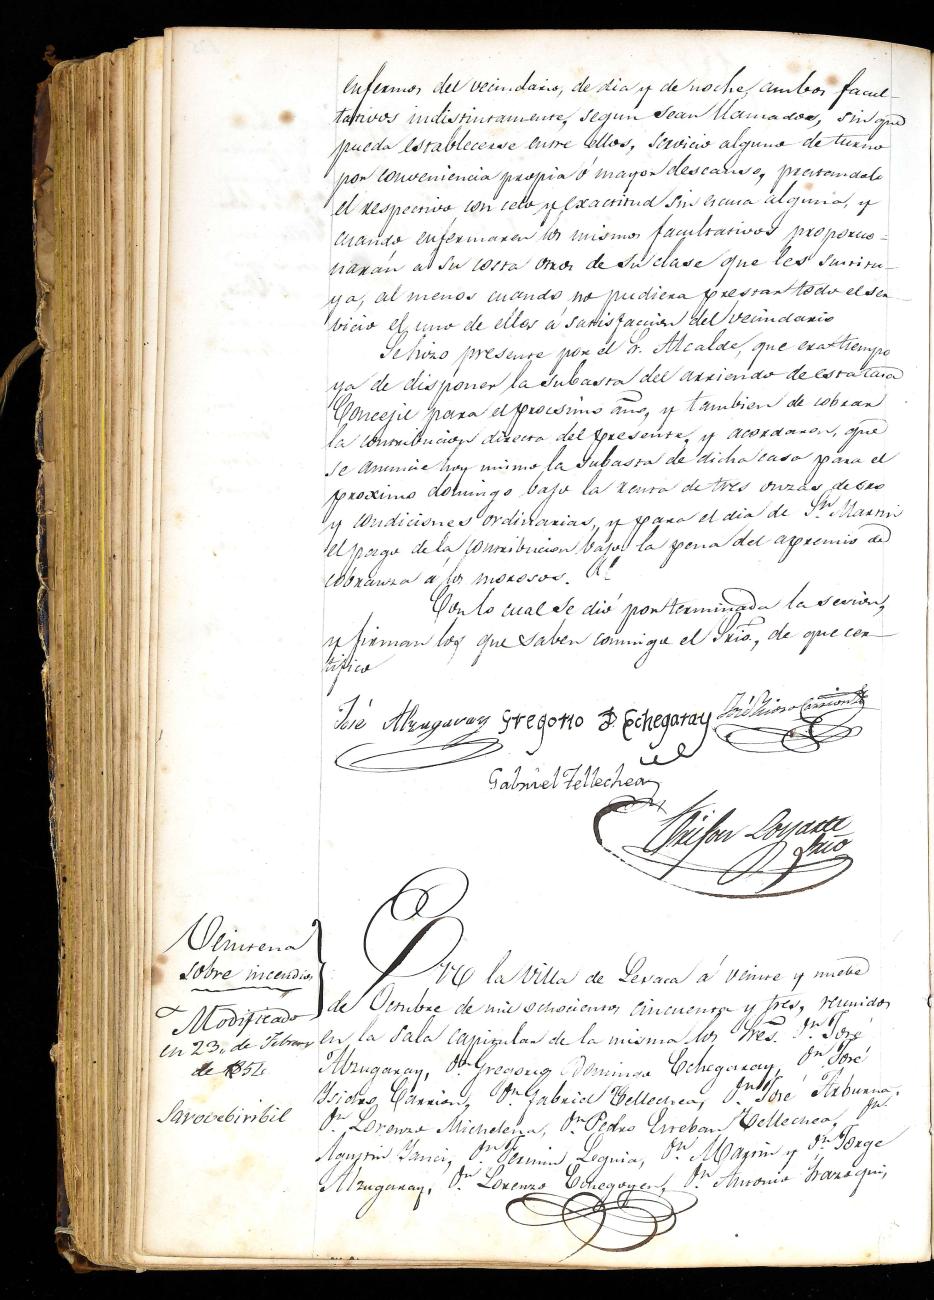 enfermos del vecindario, de dia y de noche, ambos facul-
tativos indistintamente, segun sean llamados, sin que
pueda establecerse entre ellos, servicio alguno de turno
por conveniencia propia ó mayor descanso, prestandole
el respectivo con celo y exactitud sin escusa alguna, y
cuando enfermaren los mismos facultativos proporcio-
narán a su costa otros de su clase que les sustitu-
ya, al menos cuando no pudiera prestar todo el ser-
vicio el uno de ellos á satisfaccion del vecindario
Se hizo presente por el Sr. Alcalde, que era tiempo
ya de disponer la subasta del arriendo de esta casa
Concejil para el procsimo año, y tambien de cobrar
la contribucion directa del presente, y acordaron, que
se anuncie hoy mismo la subasta de dicha casa para el
proximo domingo bajo la renta de tres onzas de oro
y condiciones ordinarias, y para el dia de Sn. Martin
el pago de la contribucion bajo la pena del apremio de
cobranza á los morosos.
Con lo cual se dió por terminada la sesion,
y firman los que saben conmigo el Srio, de que cer-
tifico
José Alzugaray Gregorio D. Echegaray José Ysidro Carrion
Gabriel Tellechea
Srio
Veintena
sobre incendios
Modificado
en 23, de Febrero
de 1854
Sarocebiribil
En la Villa de Lesaca á veinte y nueve
de Octubre de mil ochocientos cincuenta y tres, reunidos
en la sala capitular de la misma los Sres. Dn. José
Alzugaray, Dn. Gregorio Domingo Echegaray, Dn. José
Ysidro Carrion, Dn. Gabriel Tellechea, Dn. José Arburua,
Dn. Lorenzo Michelena, Dn. Pedro Esteban Tellechea, Dn.
Agustin Yanci, Dn. Fermin Leguia, Dn. Martin y Dn. Jorge
Alzugaray, Dn. Lorenzo Echegoyen, Dn. Antonio Irazoqui,